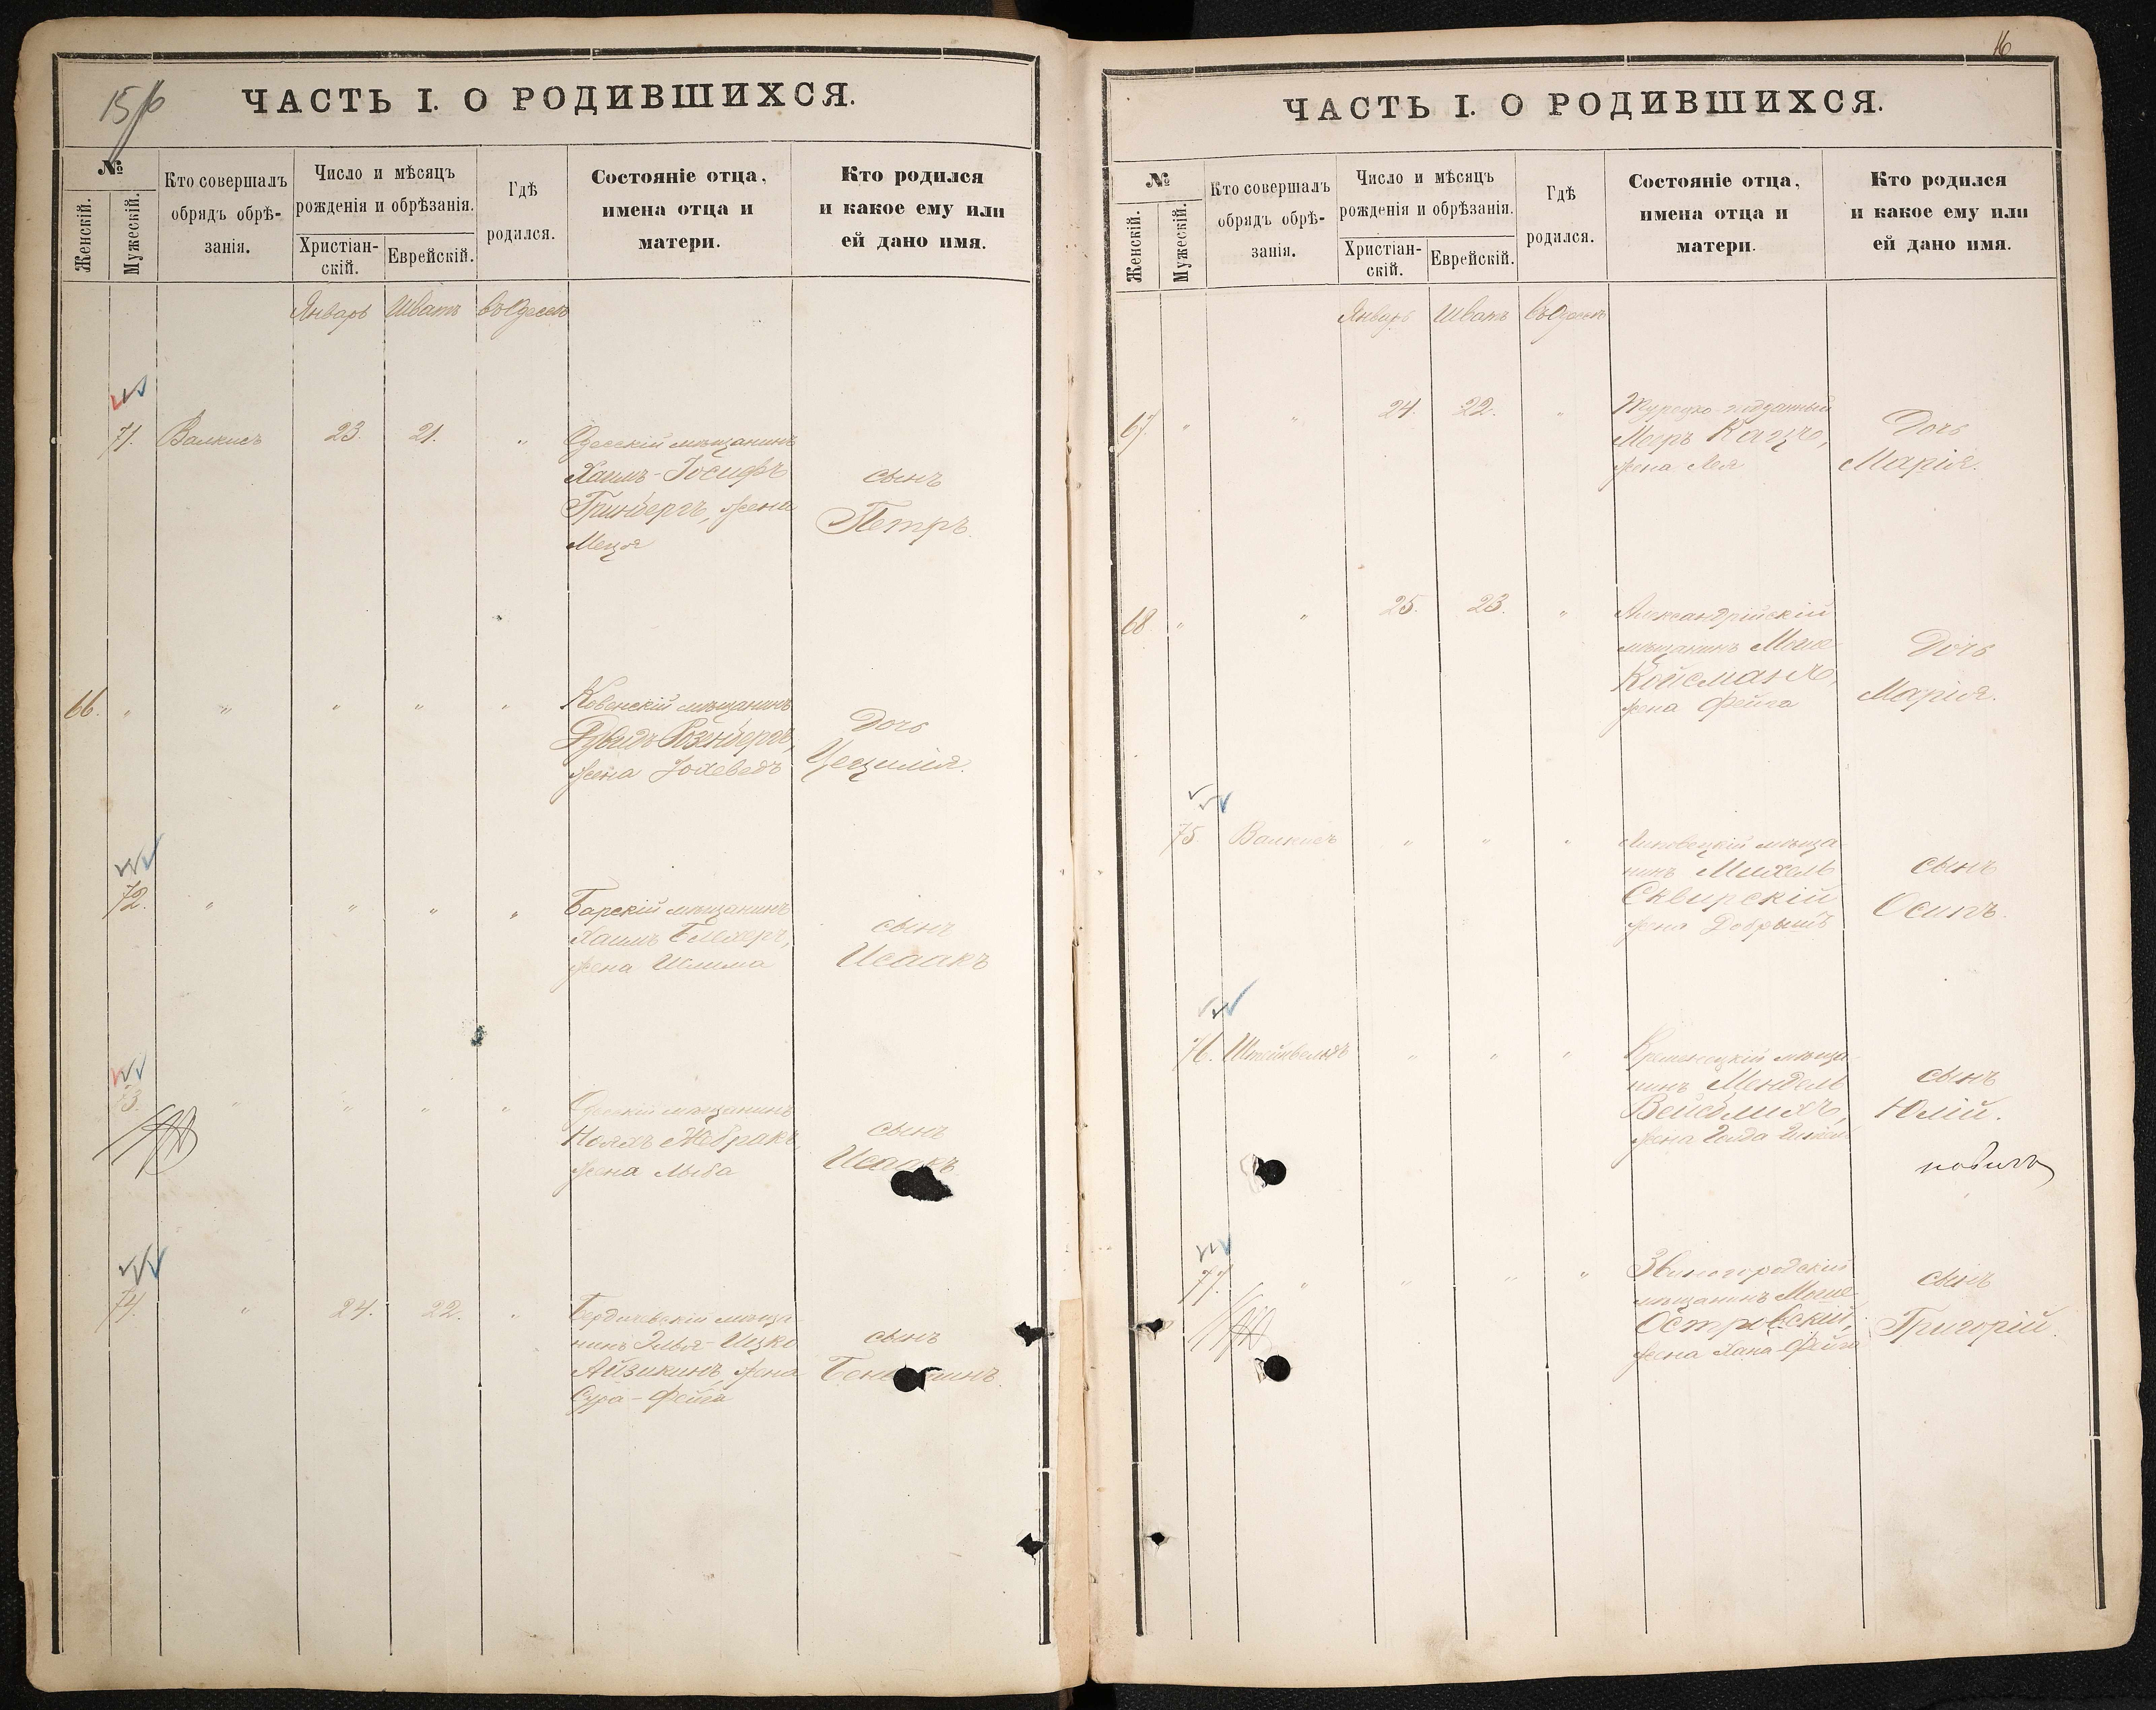 15/16
ЧАСТЬ I. О РОДИВШИХСЯ.
№
Женскій.
Мужескій.
Кто совершалъ
обрядъ обрѣ-
занія.
Число и мѣсяцъ
рожденія и обрѣзанія.
Христіан-
скій.
Еврейскій.
Гдѣ
родился.
Состояніе отца,
имена отца и
матери.
Кто родился
и какое ему или
ей дано имя.
Январь Шватъ въ Одессѣ
71. Валкисъ 23. 21. "
Одесскій мѣщанинъ
Хаимъ-Іосифъ
Гринбергъ, жена
сынъ
Петръ.
66. " " " " "
Ковенскій мѣщанинъ
Давидъ Розенбергъ,
жена Іохеведъ
Дочь
Цецилія.
72. " " " "
Барскій мѣщанинъ
Хаимъ Блехеръ,
жена Шлима
сынъ
Исаакъ
73. " " " "
Одесскій мѣщанинъ
Ноахъ Жебракъ
жена Лыба
сынъ
Исаакъ
74. " 24. 22. "
Бердичевскій мѣща-
нинъ Элья-Ицко
Айзикинъ, жена
Сура-Фейга
сынъ
16
ЧАСТЬ I. О РОДИВШИХСЯ.
№
Женскій.
Мужескій.
Кто совершалъ
обрядъ обрѣ-
занія.
Число и мѣсяцъ
рожденія и обрѣзанія.
Христіан-
скій.
Еврейскій.
Гдѣ
родился.
Состояніе отца,
имена отца и
матери.
Кто родился
и какое ему или
ей дано имя.
Январь Шватъ въ Одессѣ
67. " " 24. 22. "
Турецко-подданный
Мееръ Кацъ,
жена Лея
Дочь
Марія.
68. " " 25. 23. "
Александрійскій
мѣщанинъ
жена Фейга
Дочь
Марія.
75. Валкисъ " " "
мѣща-
нинъ Михель
Сквирскій
жена Добрышъ
сынъ
Осипъ.
76. " " "
Кременецкій мѣща-
нинъ Мендель
Вейсблихъ,
жена Голда
сынъ
Юлій.
77. " " " "
Звиногородскій
мѣщанинъ Моше
Островскій,
жена Хана-Фейга
сынъ
Григорій.